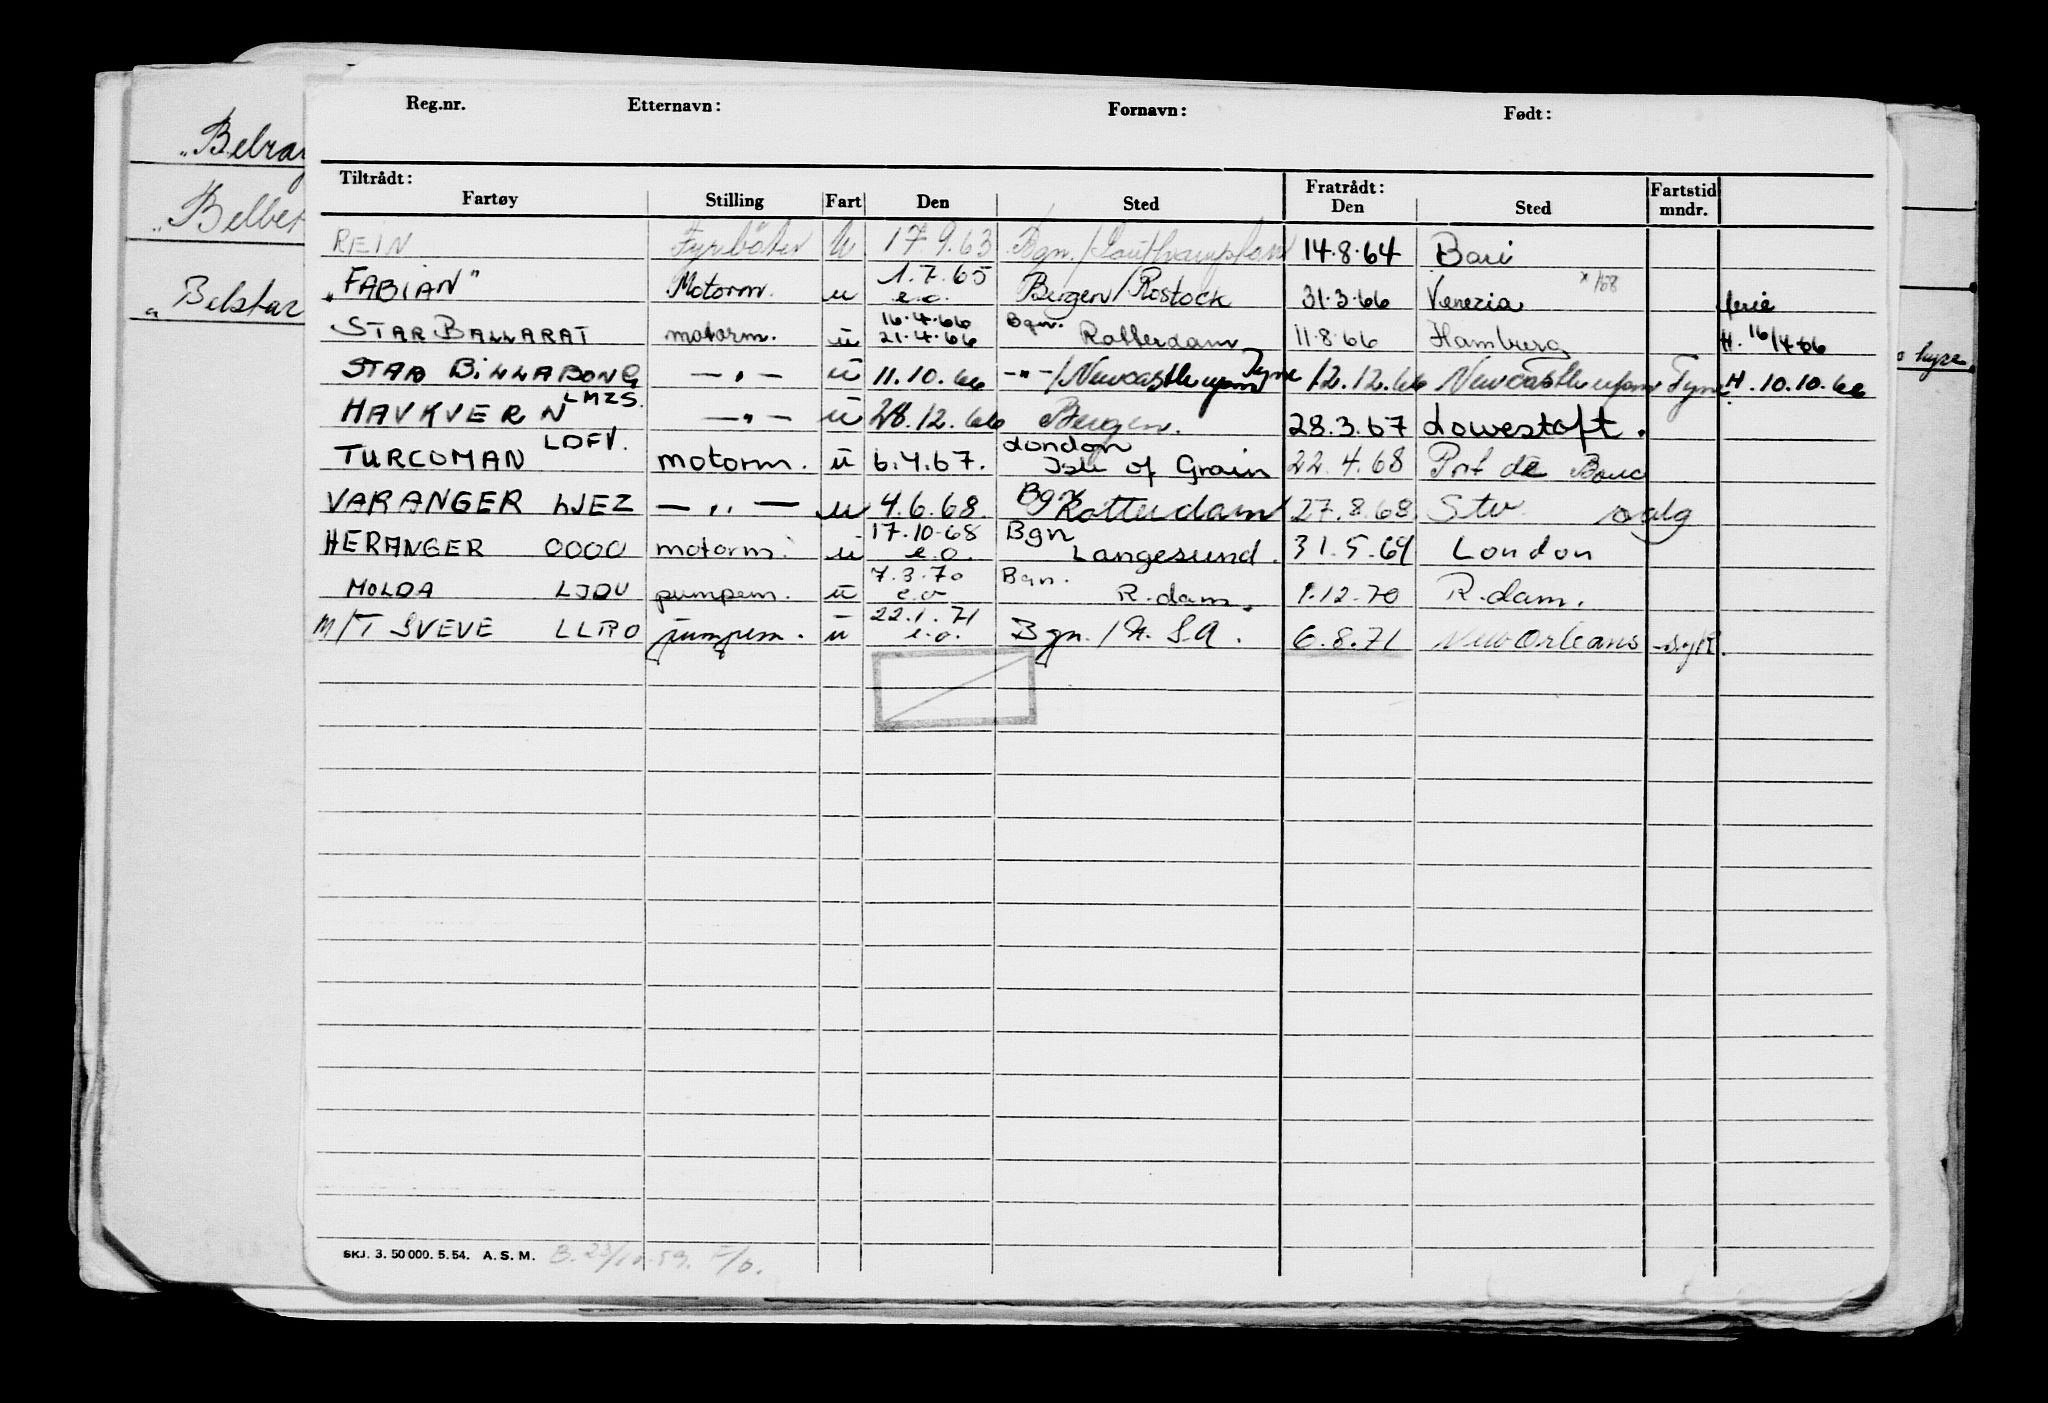 Reg.nr. Etternavn: Fornavn: Født:
Tiltrådt: Fratrådt: Fartstid
Fartøy Stilling Fart Den Sted Den Sted mndr.
REIN Fyrbøter u 17.9.63 Bgn./Southampton 14.8.64 Bari
"FABIAN" Motorm. u 1.7.65 e.o. Bergen/Rostock 31.3.66 Venezia ferie
STAR BALLARAT motorm. u 16.4.66 21.4.66 Bgn. Rotterdam 11.8.66 Hamburg H. 16/4-66
STAR BILLABONG -"- u 11.10.66 -"-/Newcastle upon Tyne 12.12.66 Newcastle upon Tyne H. 10.10.66
HAVKVERN LMZS. -"- u 28.12.66 Bergen. 28.3.67 Lowestoft.
TURCOMAN LDFV. motorm. u 6.4.67. London Isle of Grain 22.4.68 Port de Bouc
VARANGER LJEZ -"- u 4.6.68. Bgn Rotterdam 27.8.68 Stv. salg
HERANGER OOOO motorm. u 17.10.68 e.o. Bgn Langesund. 31.5.69 London
MOLDA LJDU pumpem. u 7.3.70 e.o Bgn. R.dam. 1.12.70 R.dam.
M/T SVEVE LLPO pumpem. u 22.1.71 e.o. Bgn./U.S.A. 6.8.71 New Orleans -syk.
SKJ. 3. 50 000. 5. 54. A. S. M. B. 23/10.59.
"Belray
"Belbet
"Belstar
hyre